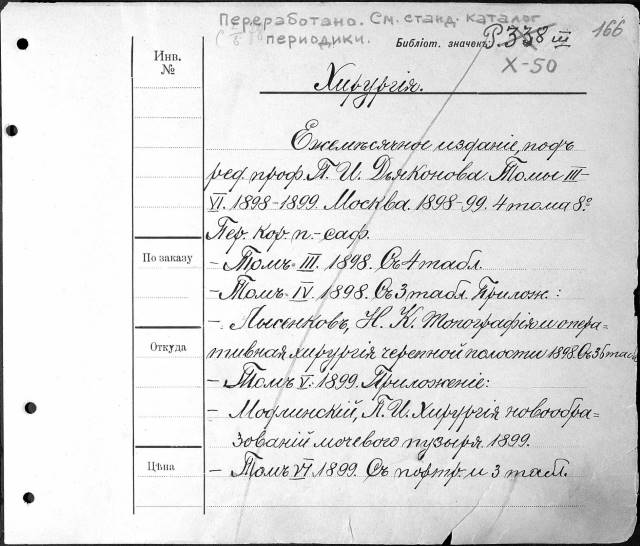 Переработано. См. станд. каталог
периодики.
166
Библіот. значекъ P 338 III
X-50
Инв.
№
Хирургія.
Ежемѣсячное изданіе, подъ
ред. проф. П. И. Дьяконова. Томы III-
VI. 1898-1899. Москва. 1898-99. 4 тома 8.º
Пер. кор. п.-саф.
По заказу
- Томъ III. 1898. Съ 4 табл.
- Томъ IV. 1898. Съ 3 табл. Прилож.:
- Лысенковъ, Н. К. Топографія и опера-
Откуда
тивная хирургія черепной полости 1898. Съ 36 табл.
- Томъ V. 1899. Приложеніе:
- Модлинскій, П. И. Хирургія новообра-
зованій мочевого пузыря 1899.
Цѣна
- Томъ VI 1899. Съ портр. и 3 табл.